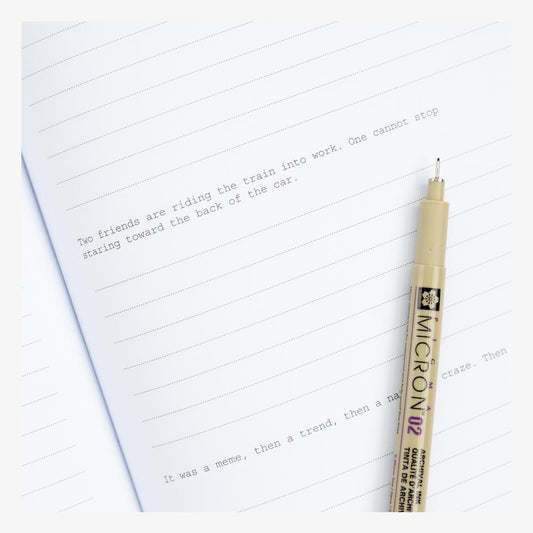 Two friends are riding the train into work. One cannot stop
staring toward the back of the car.
It was a meme, then a trend, then a craze. Then
PIGMA
MICRON 02
ARCHIVAL INK
QUALITÉ D'ARCH
TINTA DE ARCHIV